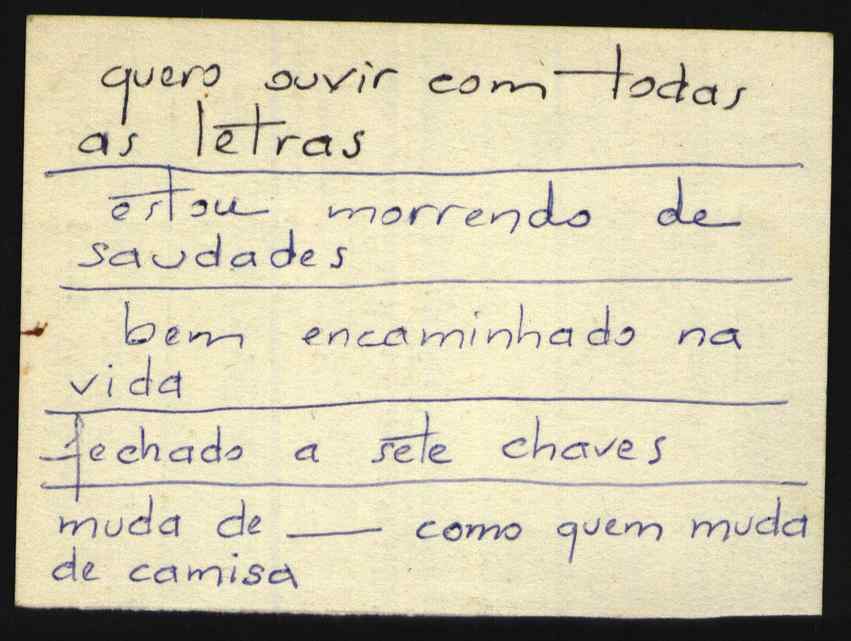 quero ouvir com todas
as letras
estou morrendo de
saudades
bem encaminhado na
vida
fechado a sete chaves
muda de ____ como quem muda
de camisa